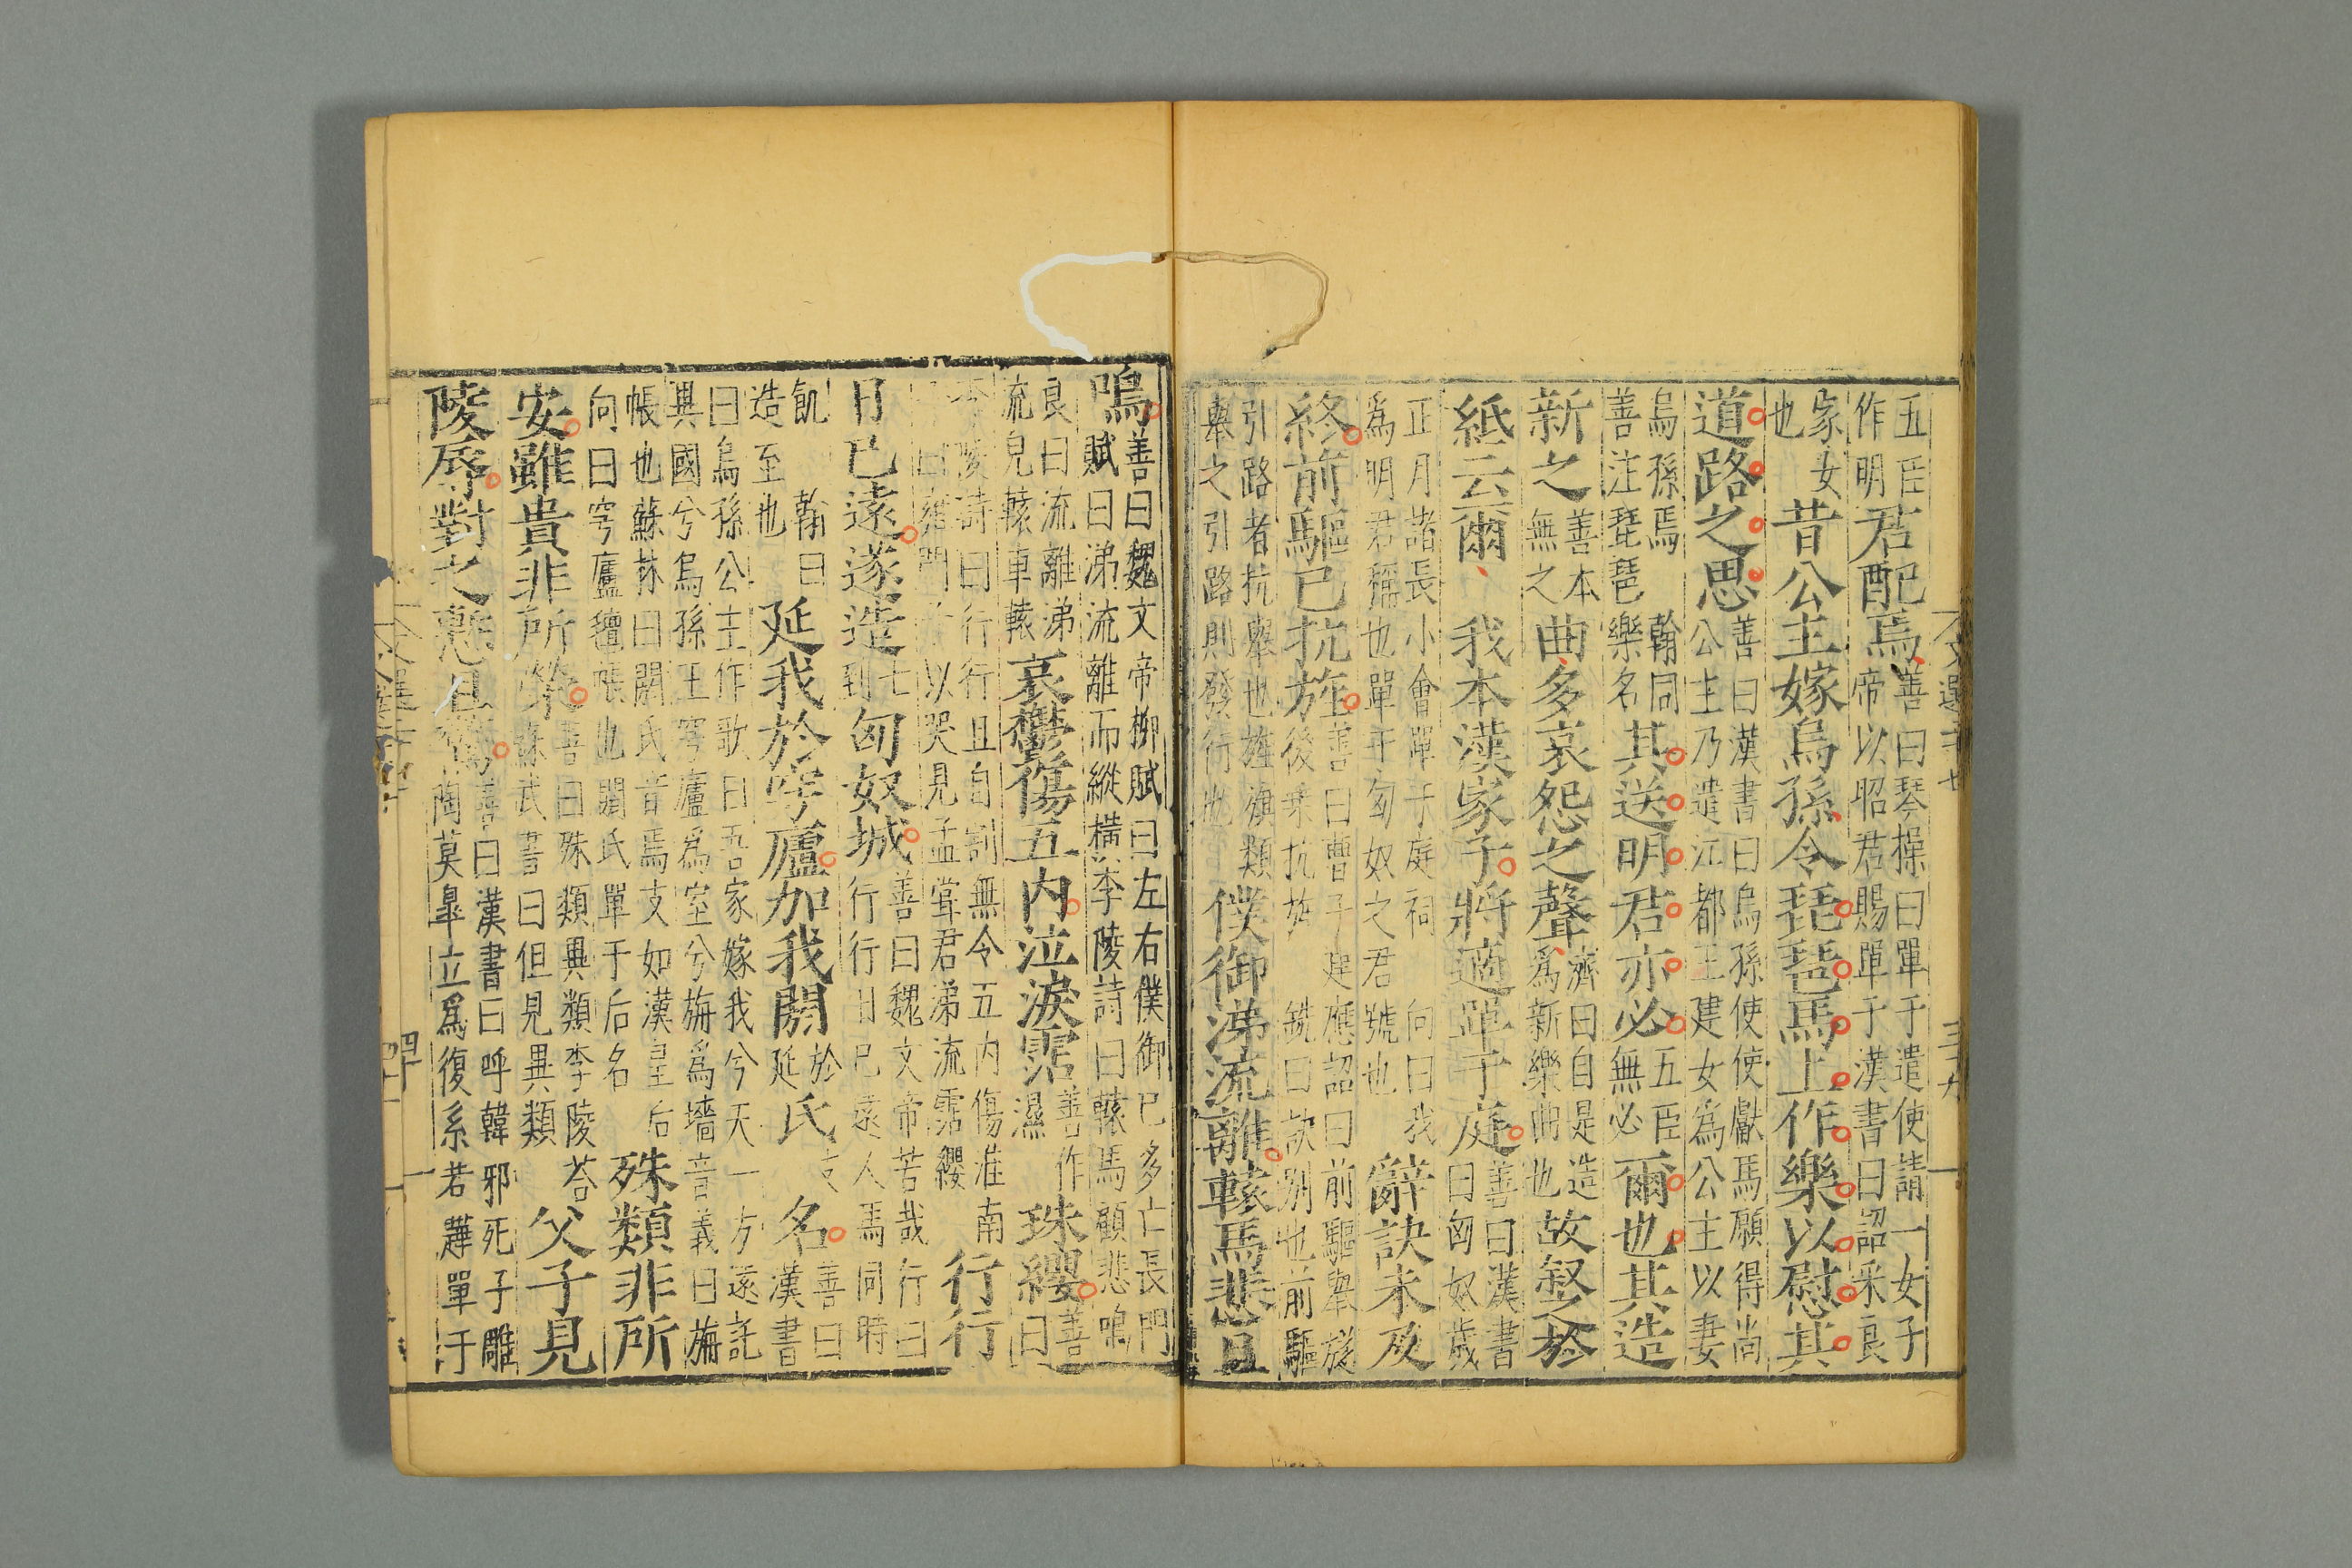 五臣作明君配焉善曰琴操曰單于遣使請一女子帝以昭君賜單于漢書曰詔采良
家女也昔公主嫁烏孫令琵琶馬上作樂以慰其
道路之思善曰漢書曰烏孫使使獻馬願得尚公主乃遣江都王建女為公主以妻
烏孫焉翰同善注琵琶樂名其送明君亦必五臣無必爾也其造
新之善本無之曲多哀怨之聲濟曰自是造爲新樂曲也故叙之於
紙云爾 我本漢家子將適單于庭善曰漢書曰匈奴歲
正月諸長小會單于庭祠向曰我爲明君稱也單于匈奴之君號也辭訣未及
終前驅已抗旌善曰曹子建應詔曰前驅舉燧後乘抗旌銑曰訣别也前驅
引路者抗舉也旌旗類舉之引路則發行也僕御涕流離轅馬悲且
鳴善曰魏文帝柳賦曰左右僕御已多亡長門賦曰涕流離而縱橫李陵詩曰轅馬顧悲鳴
良曰流離涕流皃轅車轅哀鬱傷五内泣淚霑善作濕珠纓善曰
李陵詩曰行行且自割無令五内傷淮南子曰雍門子以哭見孟甞君涕流霑纓行行
日已遠遂造七到匈奴城善曰魏文帝苦哉行曰行行日已遠人馬同時
飢翰曰造至也延我於穹廬加我閼於延氏支名善曰漢書
曰烏孫公主作歌曰吾家嫁我兮天一方遠託異國兮烏孫王穹廬爲室兮旃爲墻音義曰旃
帳也蘇林曰閼氏音焉支如漢皇后向曰穹廬氊帳也閼氏單于后名殊類非所
安雖貴非所榮善曰殊類異類李陵荅蘇武書曰但見異類父子見
陵辱對之慙且驚善曰漢書曰呼韓邪死子雕陶莫皋立爲復系若鞮單于